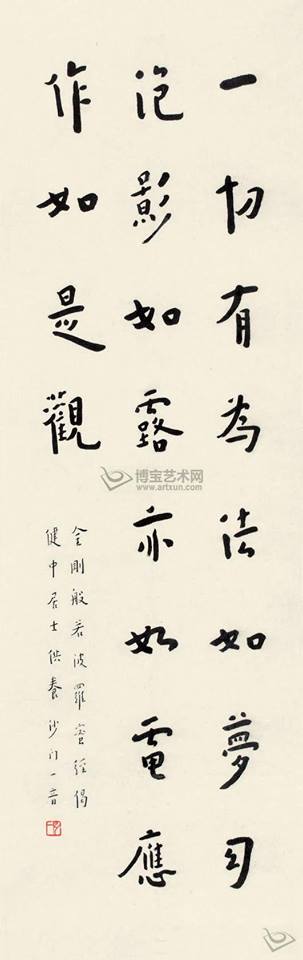 一切有為法如夢幻
泡影如露亦如電應
作如是觀
金剛般若波羅蜜經偈
健中居士供養沙門一音
博宝艺术网
www.artxun.com